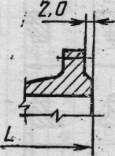 2,0
L